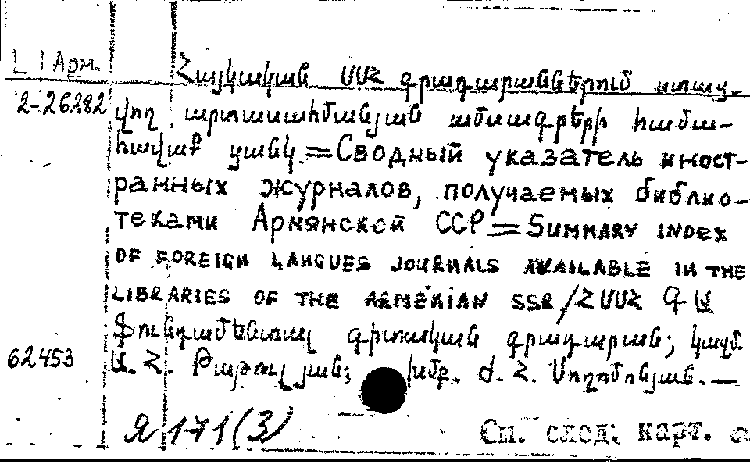 L I Арм.
Հայկական ՍՍՀ գրադարաններում ստաց-
2-26282
վող արտասահմանյան ամսագրերի համա-
հավաք ցանկ = Сводный указатель иност-
ранных журналов, получаемых библио-
теками Армянской ССР = SUMMARY INDEX
OF FOREIGN LANGUES JOURNALS AVAILABLE IN THE
LIBRARIES OF THE ARMENIAN SSR / ՀՍՍՀ ԳԱ
Ֆունդամենտալ գիտական գրադարան; կազմ.
62453
Ա. Հ. խմբ. Ժ. Հ. Սողոմոնյան. —
Я 171(3)
См. след. карт.